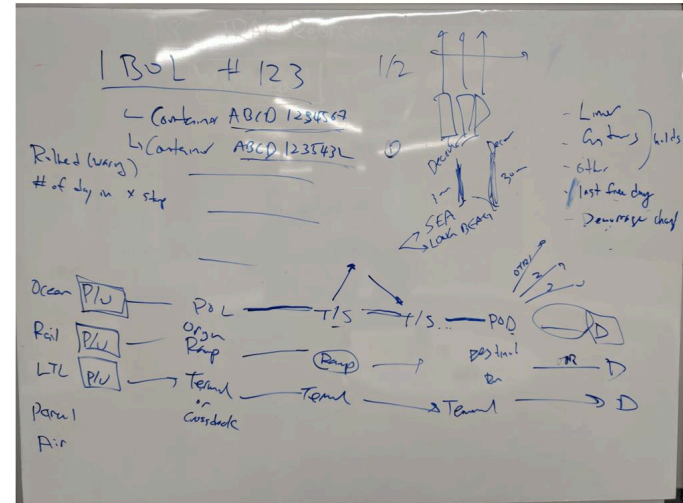 1 BOL # 123
1/2
Container ABCD 1234567
Container ABCD 123543L
Rolled (warning)
# of day in x stop
SEA
LONG BEACH
1 m
30 m
- Liner
- Customs
- other
holds
- last free day
- Demurrage
Ocean P/U POL T/S T/S POD D
Rail P/U Origin Ramp Ramp D
LTL P/U Terminal or Crossdock Terminal Terminal D
Parcel
Air